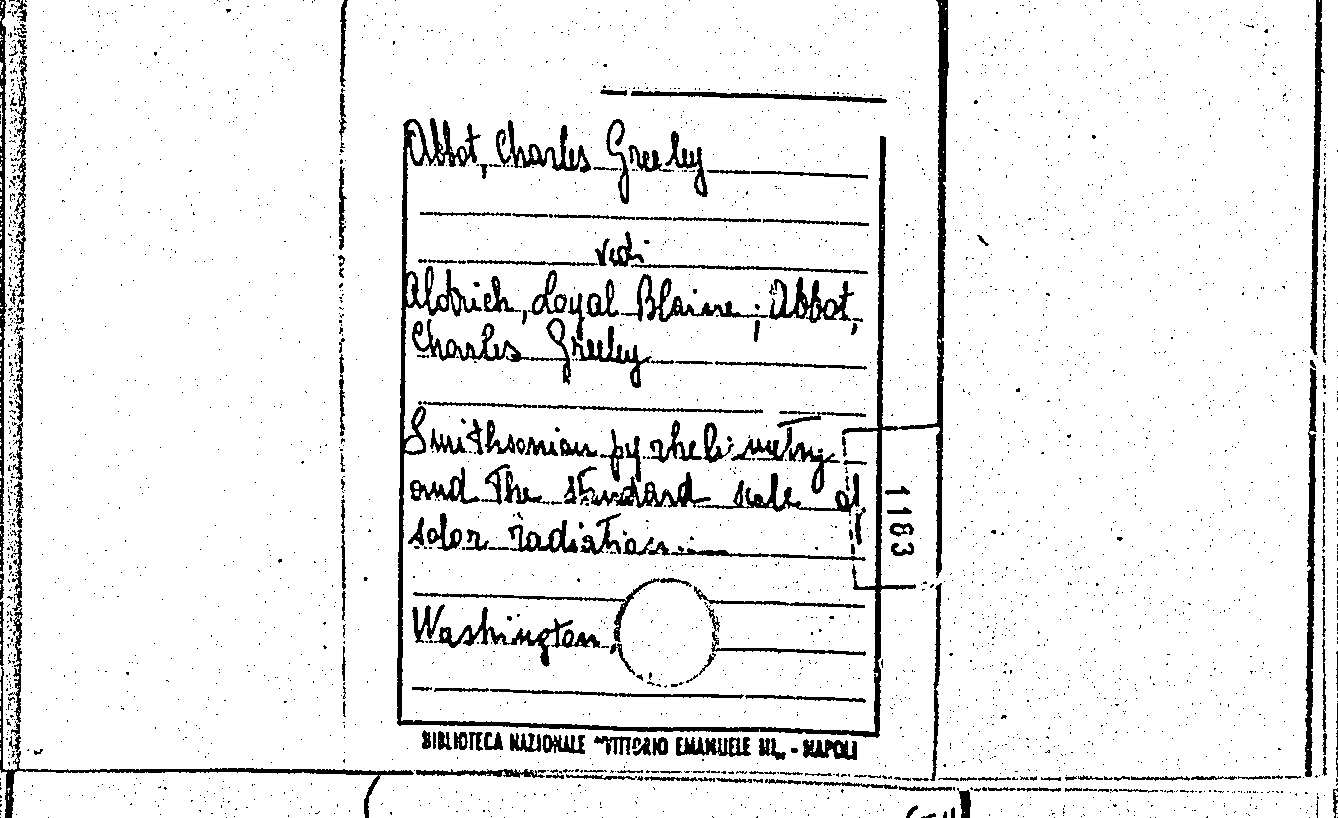 Abbot, Charles Greeley
vedi
Aldrich, Loyal Blaine; Abbot,
Charles Greeley
Smithsonian pyrheliometry
and the standard scale of
solar radiation.....
Washington,
1183
BIBLIOTECA NAZIONALE "VITTORIO EMANUELE III„ - NAPOLI